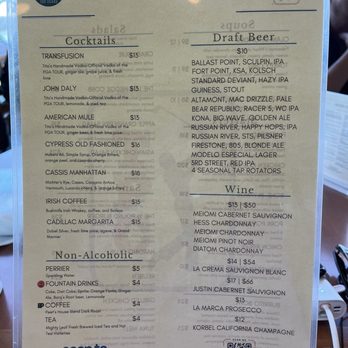 Cocktails
TRANSFUSION $15
Tito's Handmade Vodka-Official Vodka of the
PGA TOUR, ginger ale, grape juice, & fresh
lime
JOHN DALY $15
Tito's Handmade Vodka-Official Vodka of the
PGA TOUR, lemonade, & iced tea
AMERICAN MULE $15
Tito's Handmade Vodka-Official Vodka of the
PGA TOUR, ginger beer, & fresh lime juice
CYPRESS OLD FASHIONED $16
Simple Syrup, Orange Bitters,
orange peel,
CASS MANHATTAN $16
Maker's Rye, Cassis, Carpano Antica
Vermouth, Luxardo cherry, & orange bitters
IRISH COFFEE $15
Bushmills Irish Whiskey, coffee, and Baileys
CADILLAC MARGARITA $15
Dobel Silver, fresh lime juice, agave, & Grand
Marnier
Non-Alcoholic
PERRIER $5
Sparkling Water
FOUNTAIN DRINKS $4
Coke, Diet Coke, Sprite, Orange Fanta, Ginger
Ale, Barq's Root Beer, Lemonade
COFFEE $4
Peet's House Blend Dark Roast
TEA $4
Mighty Leaf Fresh Brewed Iced Tea and Hot
Tea Varieties
Draft Beer
$10
BALLAST POINT, SCULPIN, IPA
FORT POINT, KSA, KOLSCH
STANDARD DEVIANT, HAZY IPA
GUINESS, STOUT
ALTAMONT, MAC DRIZZLE, PALE
BEAR REPUBLIC, RACER 5, WC IPA
KONA, BIG WAVE, GOLDEN ALE
RUSSIAN RIVER, HAPPY HOPS, IPA
RUSSIAN RIVER, STS, PILSNER
FIRESTONE, 805, BLONDE ALE
MODELO ESPECIAL, LAGER
3RD STREET, RED IPA
4 SEASONAL TAP ROTATORS
Wine
$13 | $50
MEIOMI CABERNET SAUVIGNON
HESS CHARDONNAY
MEIOMI CHARDONNAY
MEIOMI PINOT NOIR
DIATOM CHARDONNAY
$14 | $54
LA CREMA SAUVIGNON BLANC
$17 | $66
JUSTIN CABERNET SAUVIGNON
$13
LA MARCA PROSECCO
$12
KORBEL CALIFORNIA CHAMPAGNE